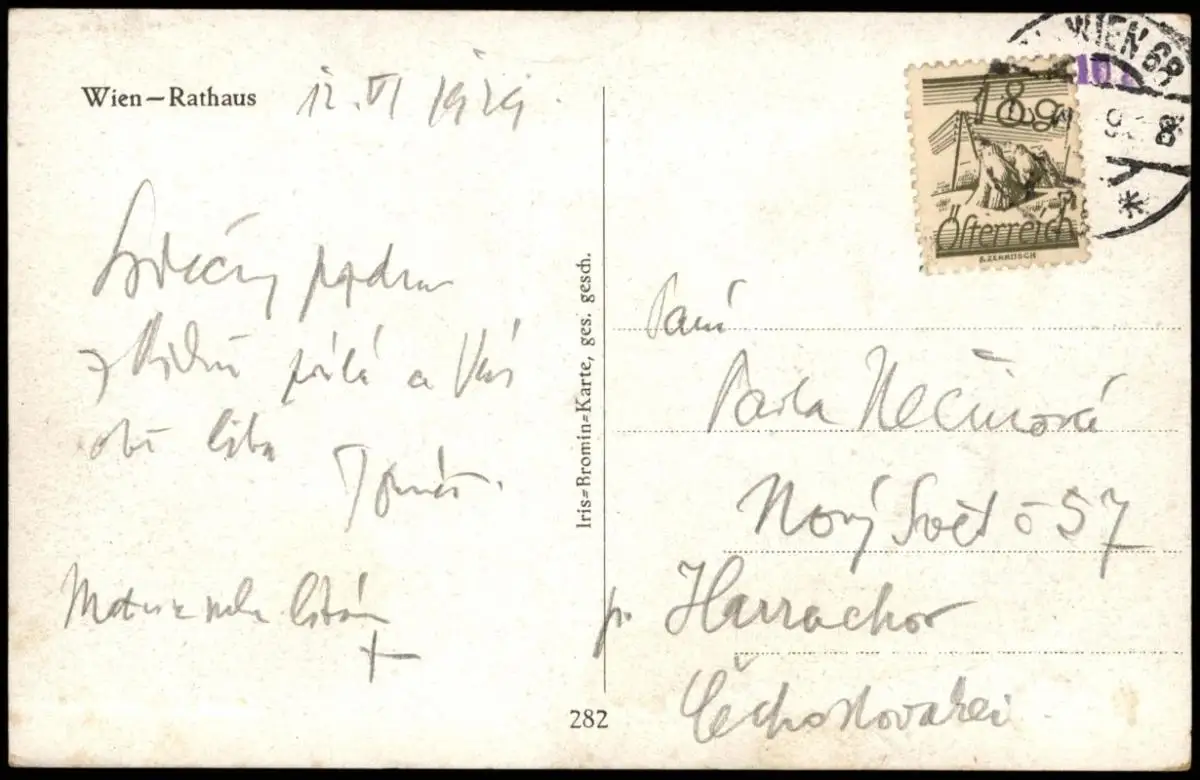 Wien–Rathaus 12. VI 1929.
Srdečný pozdrav
z Vídně posílá a Vás
obě líbá
Tomáš.
líbám
Iris=Bromin=Karte, ges. gesch.
282
WIEN 69
8
18 g
Österreich
Paní
Pavla Nečinová
Nový Svět č 57
p. Harrachov
Čechoslovakei